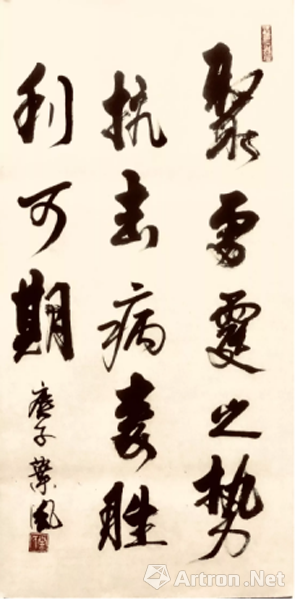 聚雷霆之势
抗击病毒胜
利可期
庚子
Artron.Net